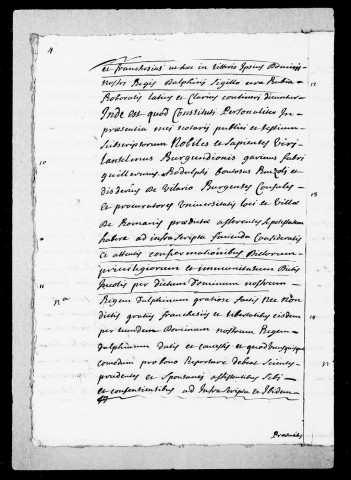 et franchesias ut hec in litteris Ipsius Domini
nostri Regis Dalphini sigillo cera Rubia
Roboratis latius et Clarius contineri dicuntur
Inde est quod Constituti Personaliter In
presentia mei notarii publici et testium
subscriptorum Nobiles et sapientes Viri
Lantelmus Burgundionis garinus fabri
guillermus Rodulphi
disderius De Vilario Burgenses Consules
et procuratores Universitatis loci et Villae
De Romanis predicta asserentes se potestatem
habere ad infrascripta facienda Consideratis
et attentis confirmationibus Dictorum
priviligiorum et immunitatum Dictis
Incolis per dictum dominum nostrum
Regem Dalphinum gratiose factis Nec Non
dictis gratiis franchesiis et libertatibus eisdem
per eumdem Dominum nostrum Regem
Dalphinum datis et concessis et quod
comodum pro bono Reportare debeat scientes
prudentes et spontanei assistentibus sibi
et consentientibus ad Infrascripta et Ibidem
10
12
18